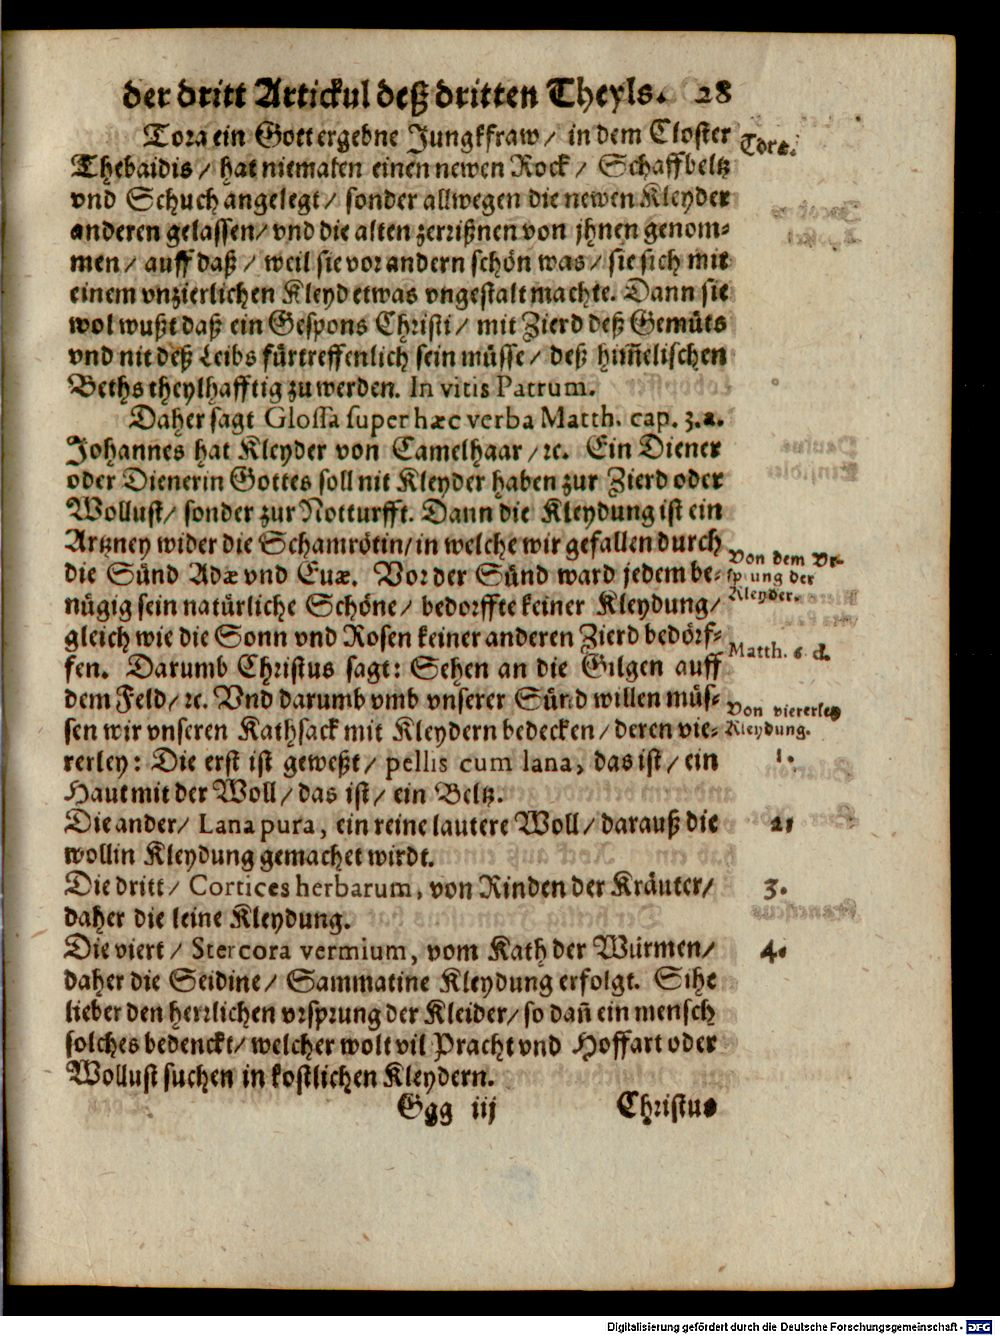 der dritt Artickul deß dritten Theyls. 28
Tora ein Gott ergebne Jungkfraw/ in dem Closter
Tora.
Thebaidis/ hat niemalen einen newen Rock/ Schaffbeltz
vnd Schuch angelegt/ sonder allwegen die newen Kleyder
anderen gelassen/ vnd die alten zerrißnen von jhnen genom-
men/ auff daß/ weil sie vor andern schön was/ sie sich mit
einem vnzierlichen Kleyd etwas vngestalt machte. Dann sie
wol wußt daß ein Gespons Christi/ mit Zierd deß Gemüts
vnd nit deß Leibs fürtreffenlich sein müsse/ deß him̃elischen
Beths theylhafftig zu werden. In vitis Patrum.
Daher sagt Glossa super hæc verba Matth. cap. 3. a.
Johannes hat Kleyder von Camelhaar/ ꝛc. Ein Diener
oder Dienerin Gottes soll nit Kleyder haben zur Zierd oder
Wollust/ sonder zur Notturfft. Dann die Kleydung ist ein
Artzney wider die Schamrötin/ in welche wir gefallen durch
die Sünd Adæ vnd Euæ. Vor der Sünd ward jedem be-
Von dem Vr-
sprung der
Kleyder.
nügig sein natürliche Schöne/ bedorffte keiner Kleydung/
gleich wie die Sonn vnd Rosen keiner anderen Zierd bedörf-
fen. Darumb Christus sagt: Sehen an die Gilgen auff
Matth. 6. d.
dem Feld/ ꝛc. Vnd darumb vmb vnserer Sünd willen müs-
sen wir vnseren Kathsack mit Kleydern bedecken/ deren vie-
Von viererley
Kleydung.
rerley: Die erst ist geweßt/ pellis cum lana, das ist/ ein
1.
Haut mit der Woll/ das ist/ ein Beltz.
Die ander/ Lana pura, ein reine lautere Woll/ darauß die
2.
wollin Kleydung gemachet wirdt.
Die dritt/ Cortices herbarum, von Rinden der Kräuter/
3.
daher die leine Kleydung.
Die viert/ Stercora vermium, vom Kath der Würmen/
4.
daher die Seidine/ Sammatine Kleydung erfolgt. Sihe
lieber den herrlichen vrsprung der Kleider/ so dañ ein mensch
solches bedenckt/ welcher wolt vil Pracht vnd Hoffart oder
Wollust suchen in kostlichen Kleydern.
Ggg iij Christus
Digitalisierung gefördert durch die Deutsche Forschungsgemeinschaft - DFG